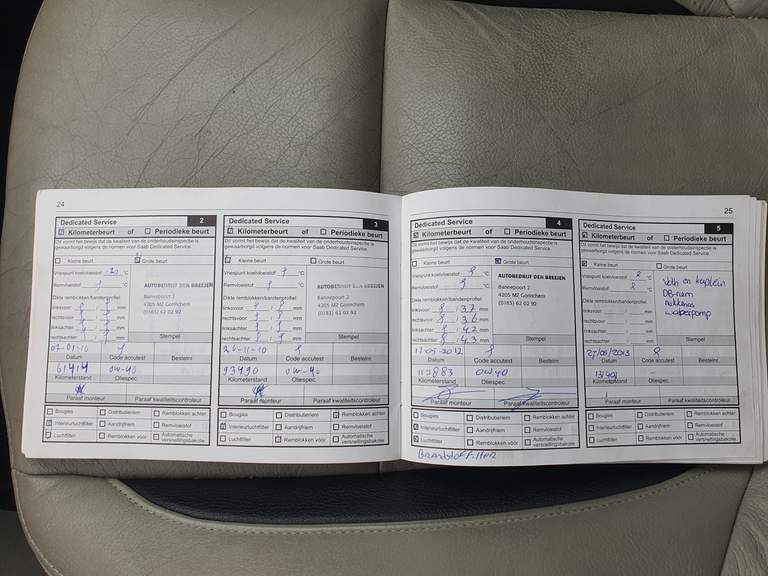 24
Dedicated Service 2
Kilometerbeurt of Periodieke beurt
Dit vormt het bewijs dat de kwaliteit van de onderhoudsinspectie is
gewaarborgd volgens de normen voor Saab Dedicated Service.
Kleine beurt Grote beurt
Vriespunt koelvloeistof -20 °C
Remvloeistof °C
Dikte remblokken/bandenprofiel:
linksvoor: / mm
rechtsvoor: / mm
linksachter: / mm
rechtsachter: / mm
AUTOBEDRIJF DEN BREEJEN
Bannepoort 2
4205 MZ Gorinchem
(0183) 62 02 92
Stempel
07-01-10
Datum Code accutest Bestelnr.
61414 0W-40
Kilometerstand Oliespec.
Paraaf monteur Paraaf kwaliteitscontroleur
Bougies Distributieriem Remblokken achter
Interieurluchtfilter Aandrijfriem Remvloeistof
Luchtfilter Remblokken vóór Automatische
versnellingsbakolie
Dedicated Service 3
Kilometerbeurt of Periodieke beurt
Dit vormt het bewijs dat de kwaliteit van de onderhoudsinspectie is
gewaarborgd volgens de normen voor Saab Dedicated Service.
Kleine beurt Grote beurt
Vriespunt koelvloeistof °C
Remvloeistof °C
Dikte remblokken/bandenprofiel:
linksvoor: / mm
rechtsvoor: / mm
linksachter: / mm
rechtsachter: / mm
AUTOBEDRIJF DEN BREEJEN
Bannepoort 2
4205 MZ Gorinchem
(0183) 62 02 92
Stempel
26-11-10
Datum Code accutest Bestelnr.
93490 0W-40
Kilometerstand Oliespec.
Paraaf monteur Paraaf kwaliteitscontroleur
Bougies Distributieriem Remblokken achter
Interieurluchtfilter Aandrijfriem Remvloeistof
Luchtfilter Remblokken vóór Automatische
versnellingsbakolie
25
Dedicated Service 4
Kilometerbeurt of Periodieke beurt
Dit vormt het bewijs dat de kwaliteit van de onderhoudsinspectie is
gewaarborgd volgens de normen voor Saab Dedicated Service.
Kleine beurt Grote beurt
Vriespunt koelvloeistof °C
Remvloeistof °C
Dikte remblokken/bandenprofiel:
linksvoor: / 3.2 mm
rechtsvoor: / mm
linksachter: / 4.2 mm
rechtsachter: / 4.3 mm
AUTOBEDRIJF DEN BREEJEN
Bannepoort 2
4205 MZ Gorinchem
(0183) 62 02 92
Stempel
2012
Datum Code accutest Bestelnr.
112883 0W40
Kilometerstand Oliespec.
Paraaf monteur Paraaf kwaliteitscontroleur
Bougies Distributieriem Remblokken achter
Interieurluchtfilter Aandrijfriem Remvloeistof
Luchtfilter Remblokken vóór Automatische
versnellingsbakolie
Brandstoffilter
Dedicated Service 5
Kilometerbeurt of Periodieke beurt
Dit vormt het bewijs dat de kwaliteit van de onderhoudsinspectie is
gewaarborgd volgens de normen voor Saab Dedicated Service.
Kleine beurt Grote beurt
Vriespunt koelvloeistof °C
Remvloeistof °C
Dikte remblokken/bandenprofiel:
linksvoor: / mm
rechtsvoor: / mm
linksachter: / mm
rechtsachter: / mm
D-riem
waterpomp
Stempel
2013
Datum Code accutest Bestelnr.
Kilometerstand Oliespec.
Paraaf monteur Paraaf kwaliteitscontroleur
Bougies Distributieriem Remblokken achter
Interieurluchtfilter Aandrijfriem Remvloeistof
Luchtfilter Remblokken vóór Automatische
versnellingsbakolie